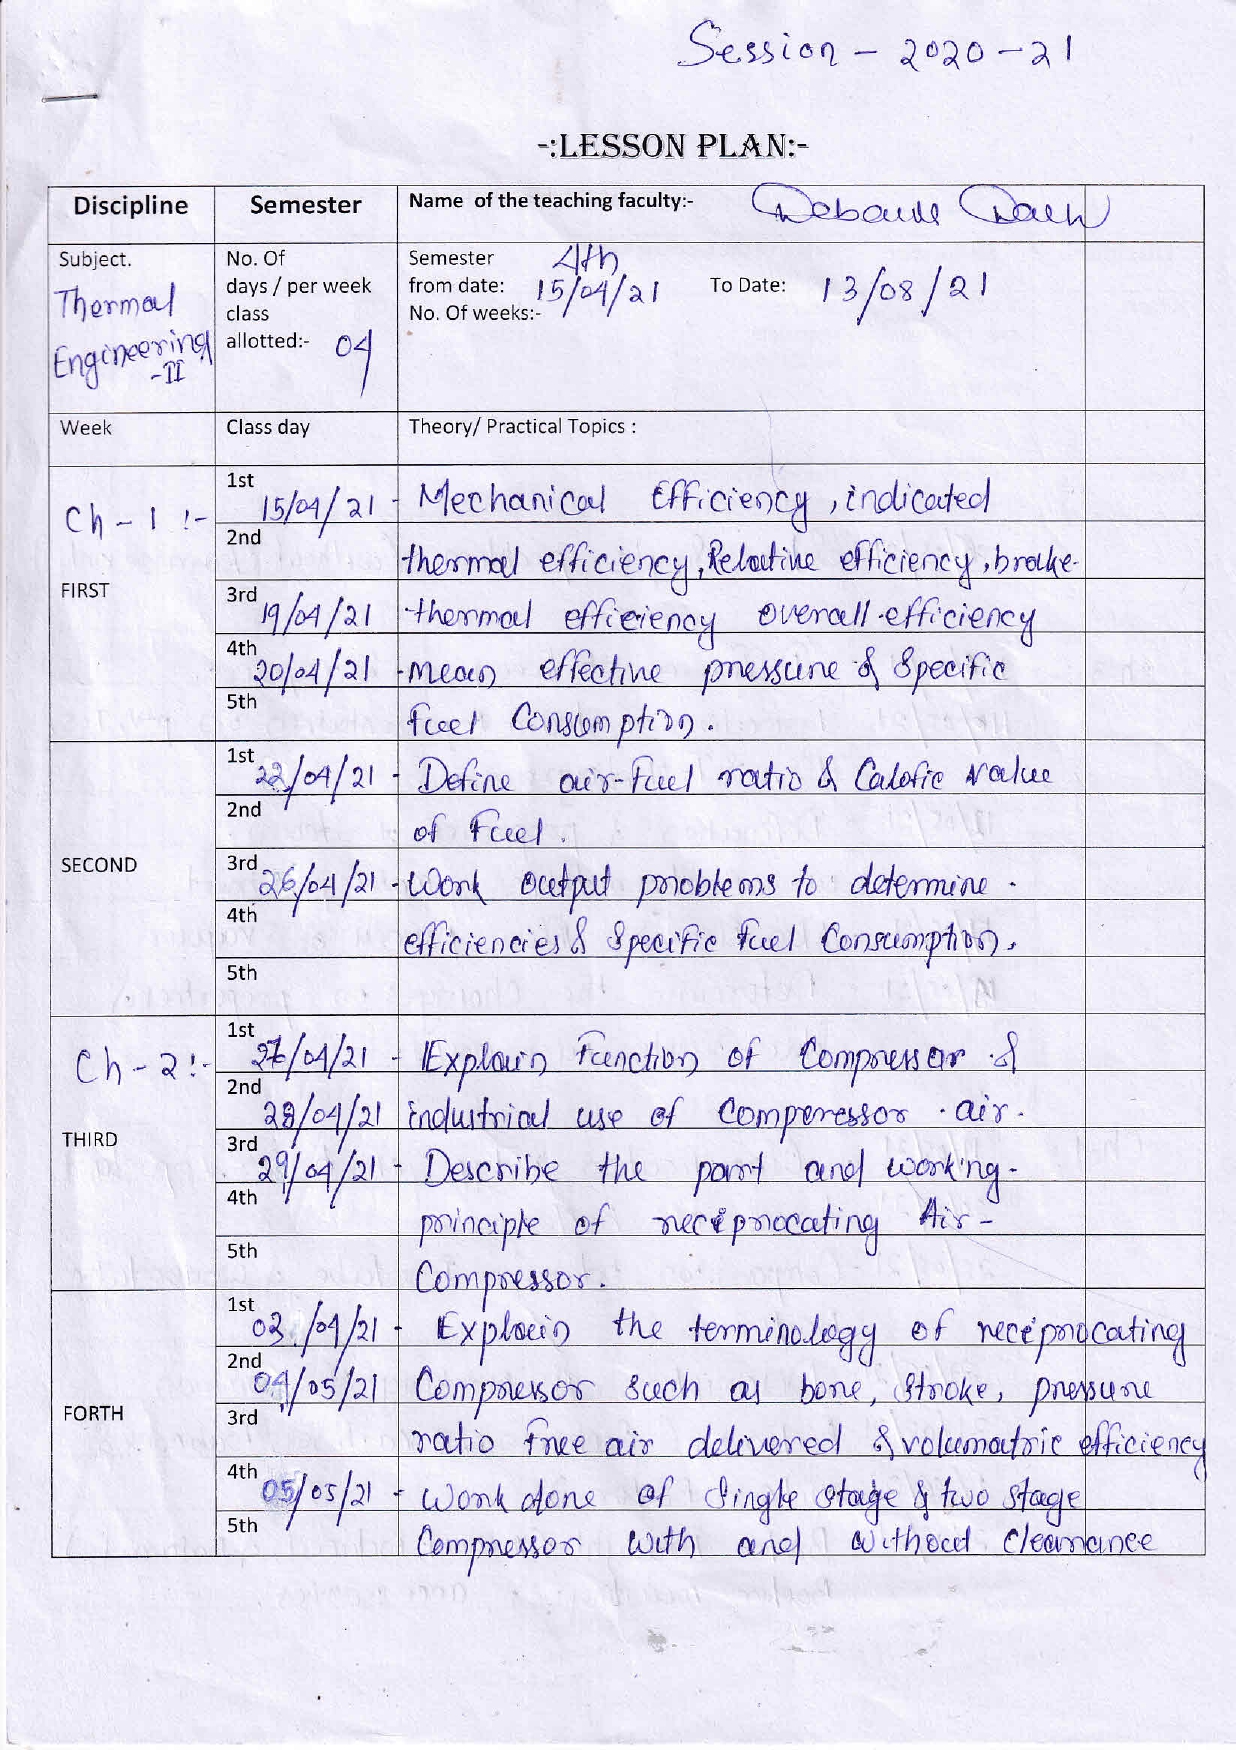 Session - 2020-21
-:LESSON PLAN:-
Discipline
Semester
Name of the teaching faculty:-
Subject.
Thermal
Engineering
-II
No. Of
days / per week
class
allotted:- 04
Semester 4th
from date: 15/04/21 To Date: 13/08/21
No. Of weeks:-
Week
Class day
Theory/ Practical Topics :
Ch-1 :-
FIRST
1st 15/04/21 - Mechanical Efficiency, indicated
2nd thermal efficiency, Relative efficiency, brake-
3rd 19/04/21 thermal efficiency overall efficiency
4th 20/04/21 - mean effective pressure & Specific
5th fuel Consumption.
SECOND
1st 22/04/21 - Define air-fuel ratio & Calorific value
2nd of Fuel.
3rd 26/04/21 - Work output problems to determine
4th efficiencies & Specific fuel Consumption.
5th
Ch-2 :-
THIRD
1st 27/04/21 - Explain function of Compressor &
2nd 28/04/21 industrial use of Comperessor air.
3rd 29/04/21 - Describe the part and working-
4th principle of reciprocating Air-
5th Compressor.
FORTH
1st 03/04/21 - Explain the terminology of reciprocating
2nd 04/05/21 Compressor such as bore, stroke, pressure
3rd ratio free air delivered & volumatric efficiency
4th 05/05/21 - Work done of Single stage & two stage
5th Compressor with and without Clearance